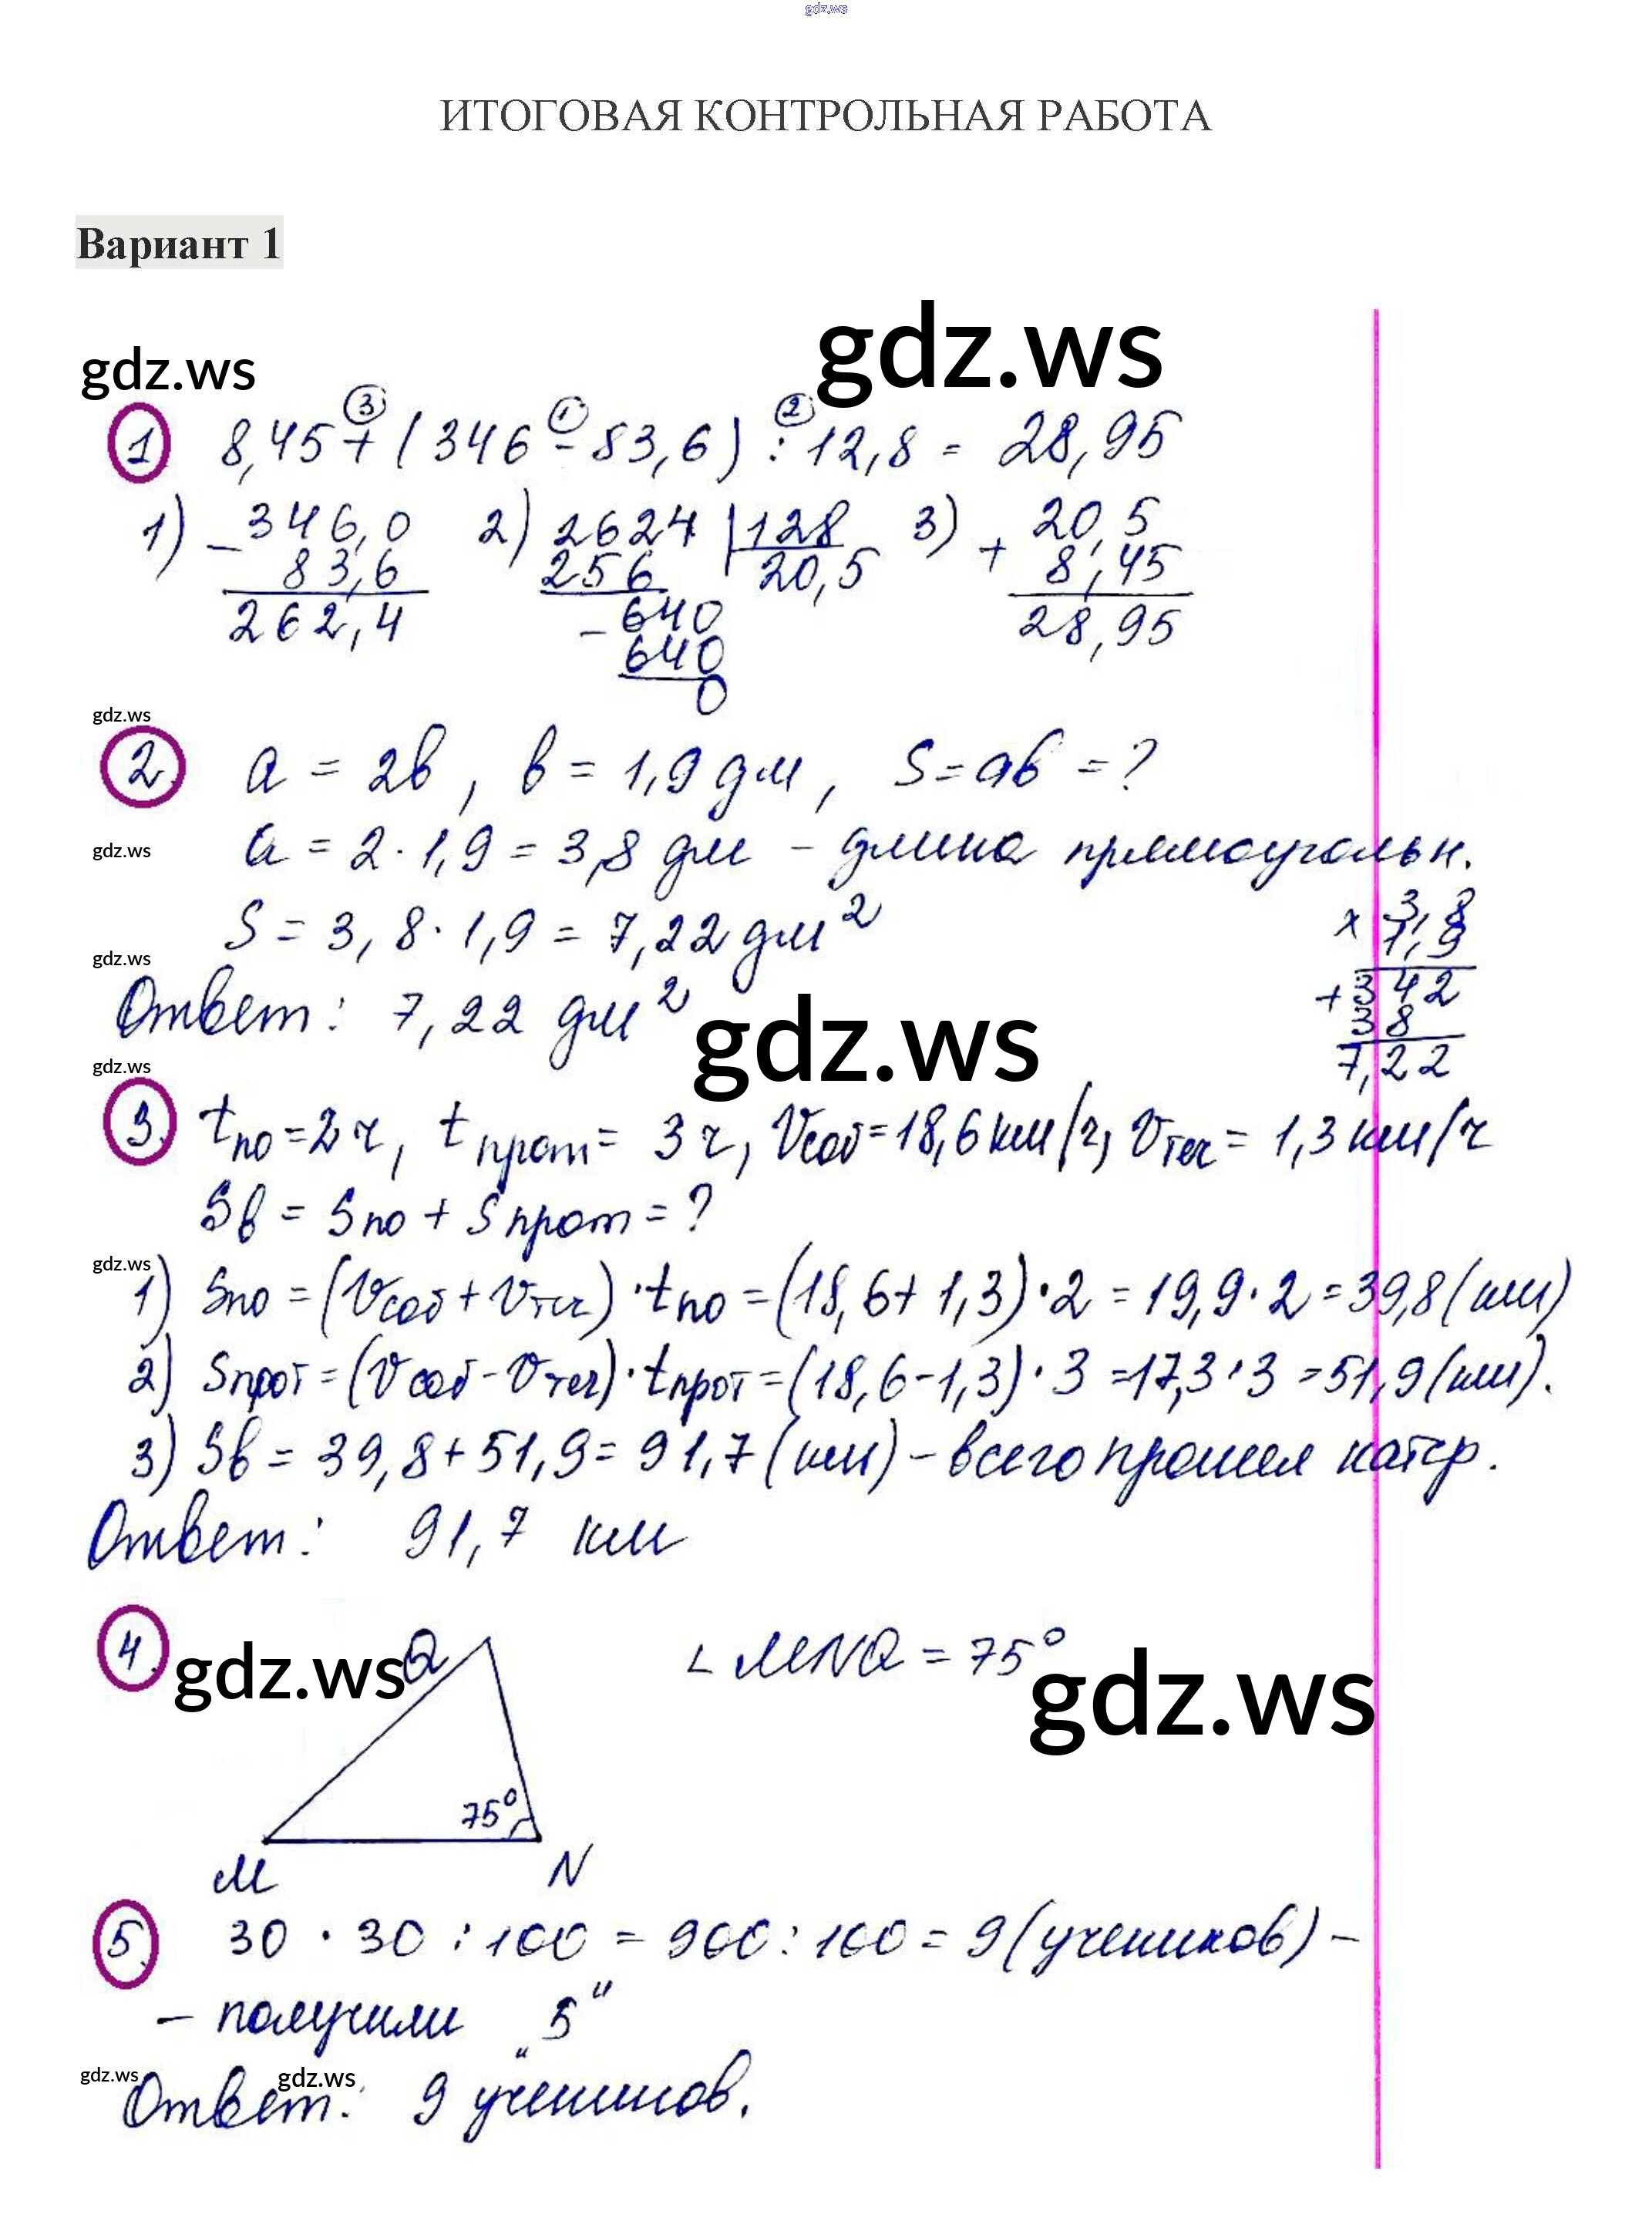 gdz.ws
ИТОГОВАЯ КОНТРОЛЬНАЯ РАБОТА
Вариант 1
gdz.ws
gdz.ws
3 1 2
1 8,45 + (346 - 83,6) : 12,8 = 28,95
1) - 346,0 2) 2624 | 128 3) + 20,5
83,6 256 20,5 8,45
262,4 - 640 28,95
640
0
gdz.ws
2 a = 2b, b = 1,9 дм, S = ab = ?
gdz.ws
a = 2 · 1,9 = 3,8 дм - длина прямоугольн.
S = 3,8 · 1,9 = 7,22 дм² x 3,8
gdz.ws 1,9
+ 342
38
7,22
Ответ: 7,22 дм²
gdz.ws
gdz.ws
3. tпо = 2 ч, tпрот = 3 ч, Vсоб = 18,6 км/ч, Vтеч = 1,3 км/ч
Sв = Sпо + Sпрот = ?
gdz.ws
1) Sпо = (Vсоб + Vтеч) · tпо = (18,6 + 1,3) · 2 = 19,9 · 2 = 39,8 (км)
2) Sпрот = (Vсоб - Vтеч) · tпрот = (18,6 - 1,3) · 3 = 17,3 · 3 = 51,9 (км).
3) Sв = 39,8 + 51,9 = 91,7 (км) - всего прошел катер.
Ответ: 91,7 км
4. gdz.ws Q ∠ MNQ = 75°
gdz.ws
75°
M N
5. 30 · 30 : 100 = 900 : 100 = 9 (учеников) -
- получили „5"
gdz.ws gdz.ws
Ответ: 9 учеников.